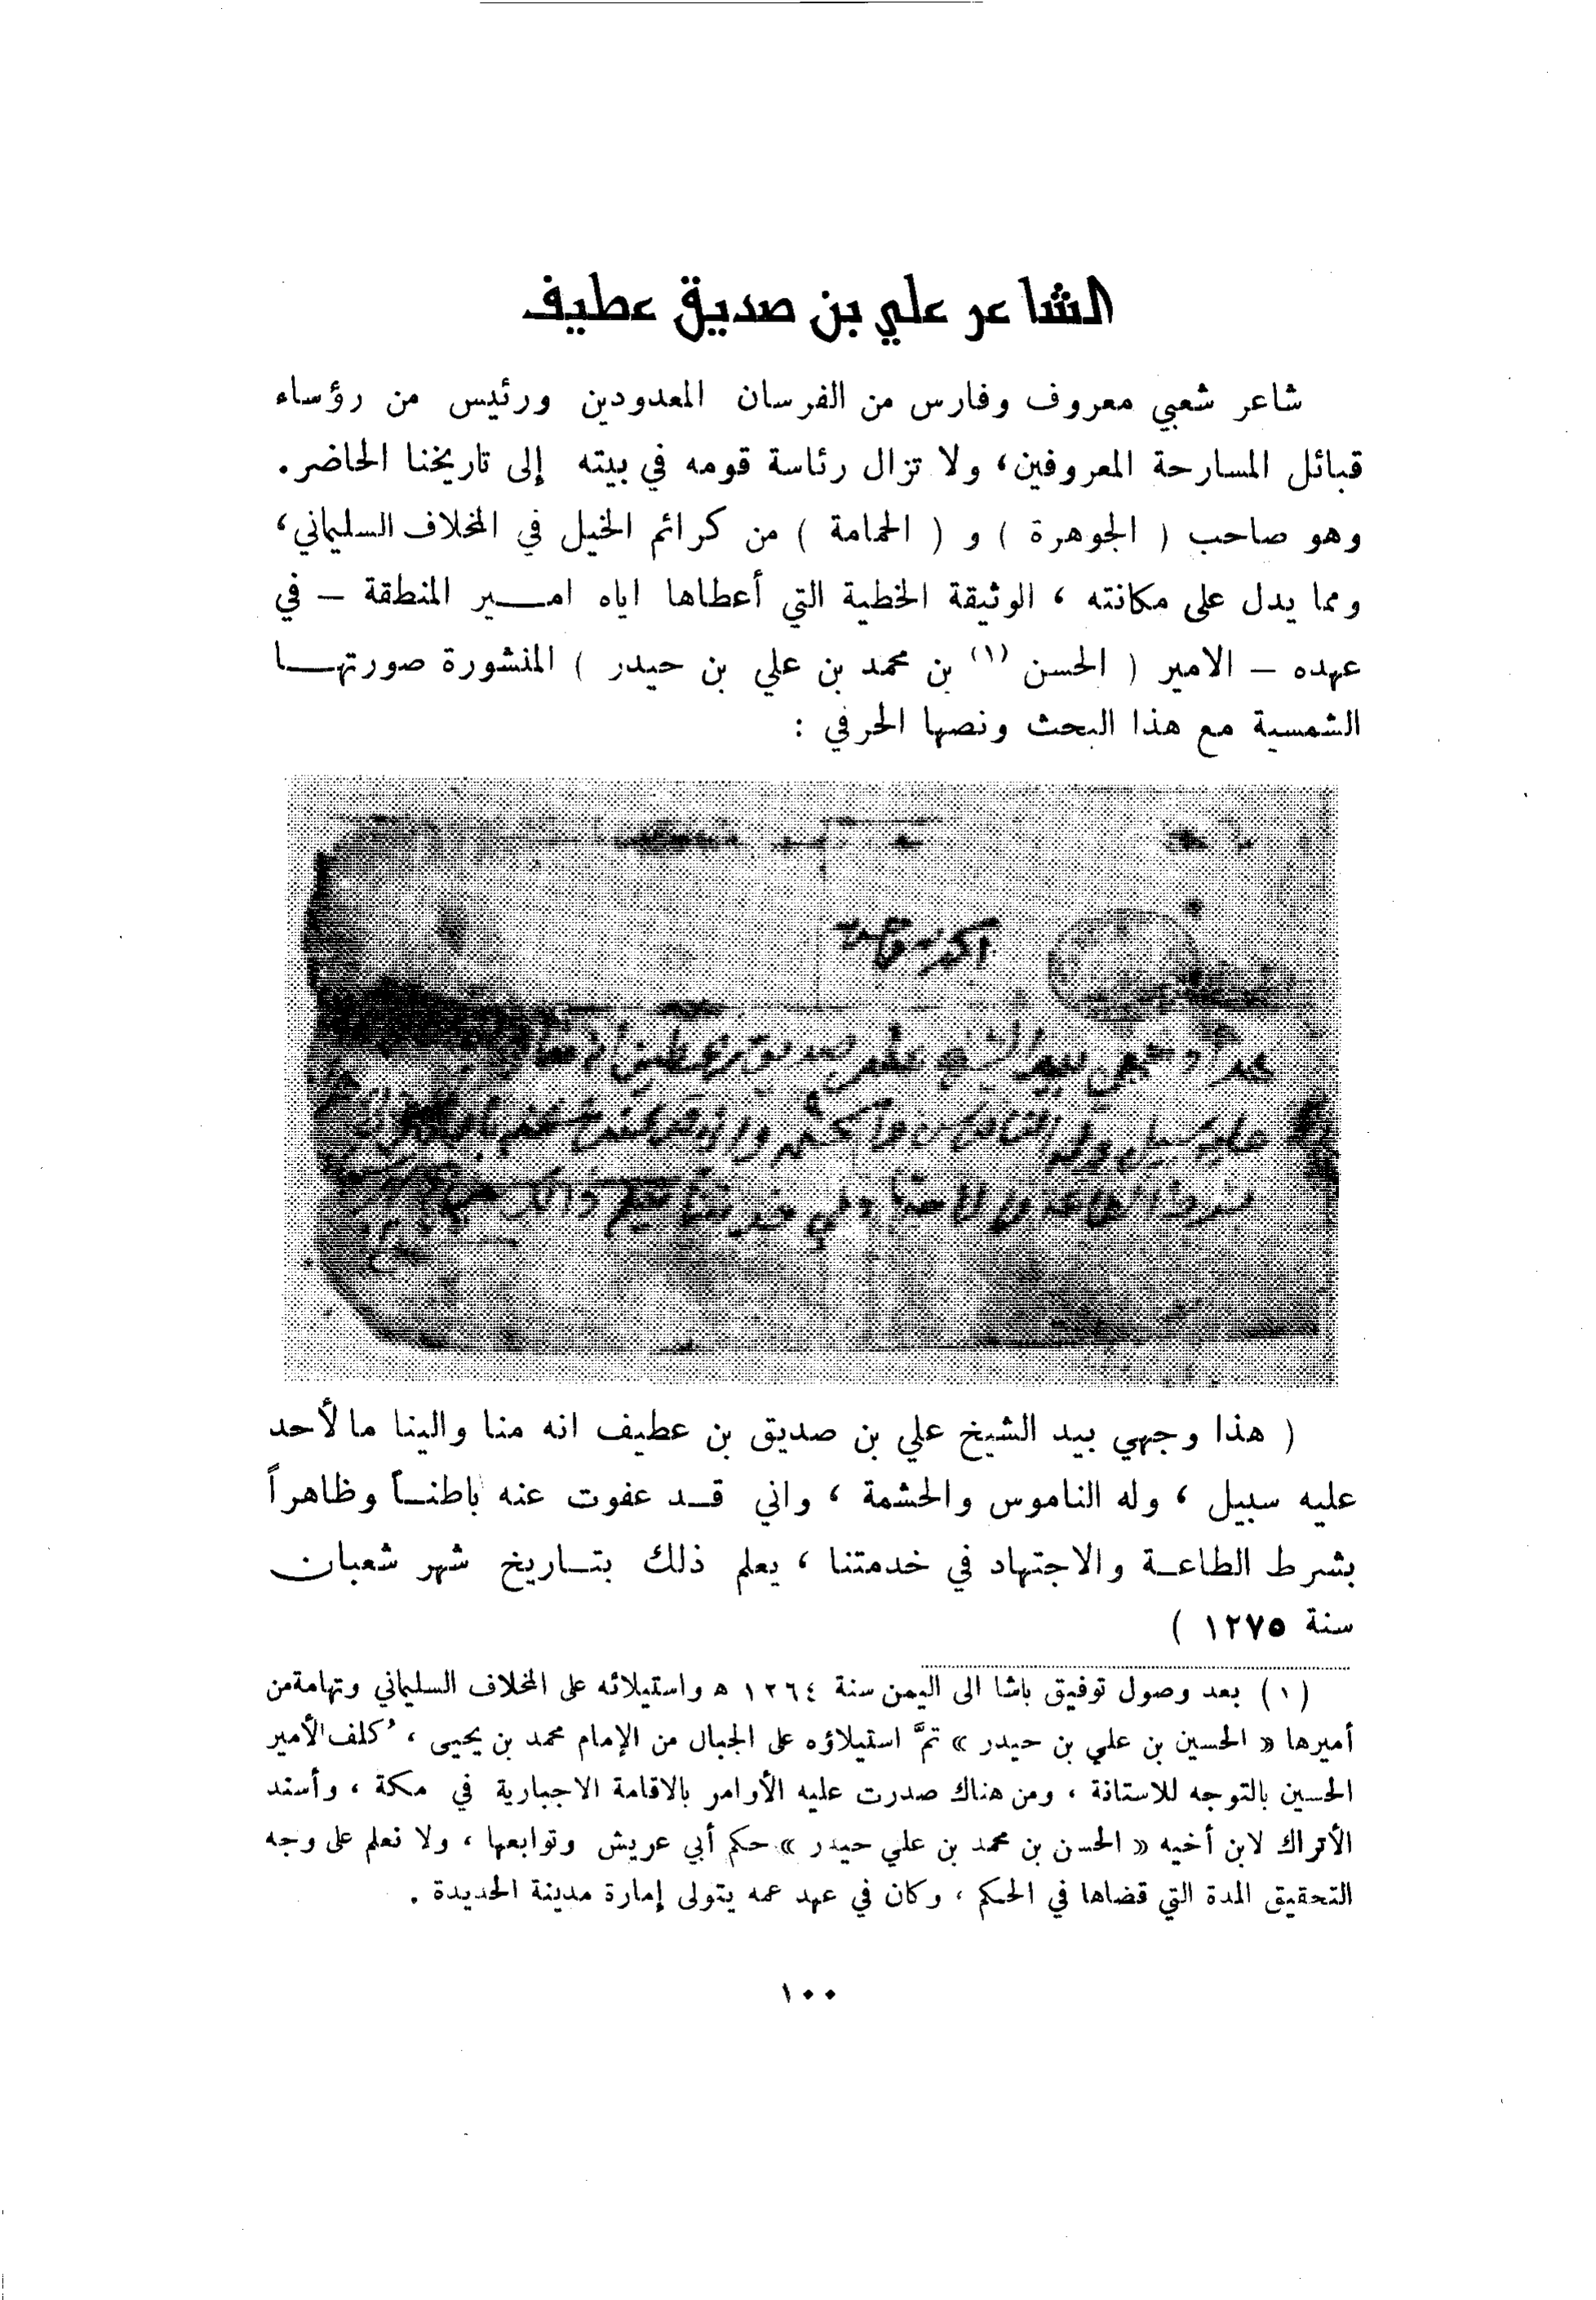 الشاعر علي بن صديق عطيف
شاعر شعبي معروف وفارس من الفرسان المعدودين ورئيس من رؤساء
قبائل المسارحة المعروفين، ولا تزال رئاسة قومه في بيته إلى تاريخنا الحاضر.
وهو صاحب ( الجوهرة ) و ( الحمامة ) من كرائم الخيل في المخلاف السليماني،
ومما يدل على مكانته ، الوثيقة الخطية التي أعطاها اياه امـــير المنطقة – في
عهده – الامير ( الحسن (١) بن محمد بن علي بن حيدر ) المنشورة صورتهـــا
الشمسية مع هذا البحث ونصها الحرفي :
الحمد لله وحده
( هذا وجهي بيد الشيخ علي بن صديق بن عطيف انه منا والينا ما لأحد
عليه سبيل ، وله الناموس والحشمة ، واني قـــد عفوت عنه باطنـــاً وظاهراً
بشرط الطاعـــة والاجتهاد في خدمتنا ، يعلم ذلك بتـــاريخ شهر شعبان
سنة ١٢٧٥ )
(١) بعد وصول توفيق باشا الى اليمن سنة ١٢٦٤ ه واستيلائه على المخلاف السليماني وتهامة من
أميرها « الحسين بن علي بن حيدر » تمَّ استيلاؤه على الجبال من الإمام محمد بن يحيى ، كُلف الأمير
الحسين بالتوجه للاستانة ، ومن هناك صدرت عليه الأوامر بالاقامة الاجبارية في مكة ، وأسند
الأتراك لابن أخيه « الحسن بن محمد بن علي حيدر » حكم أبي عريش وتوابعها ، ولا نعلم على وجه
التحقيق المدة التي قضاها في الحكم ، وكان في عهد عمه يتولى إمارة مدينة الحديدة .
١٠٠